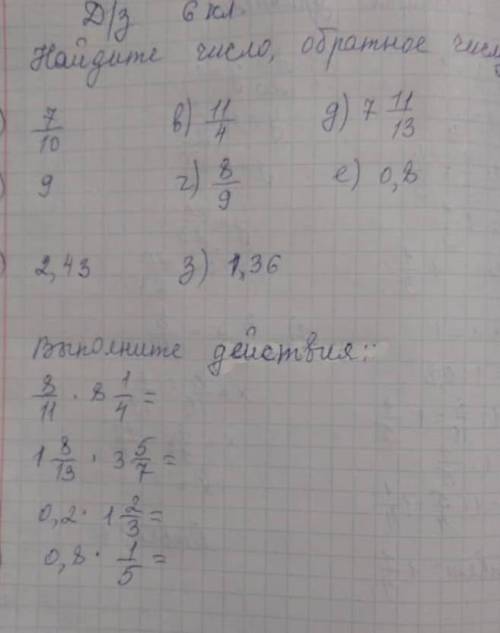 Д/з 6 кл.
Найдите число, обратное числу
) 7/10 в) 11/4 д) 7 11/13
) 9 г) 8/9 е) 0,8
) 2,43 з) 1,36
Выполните действия:
8/11 · 8 1/4 =
1 8/13 · 3 5/7 =
0,2 · 1 2/3 =
) 0,8 · 1/5 =